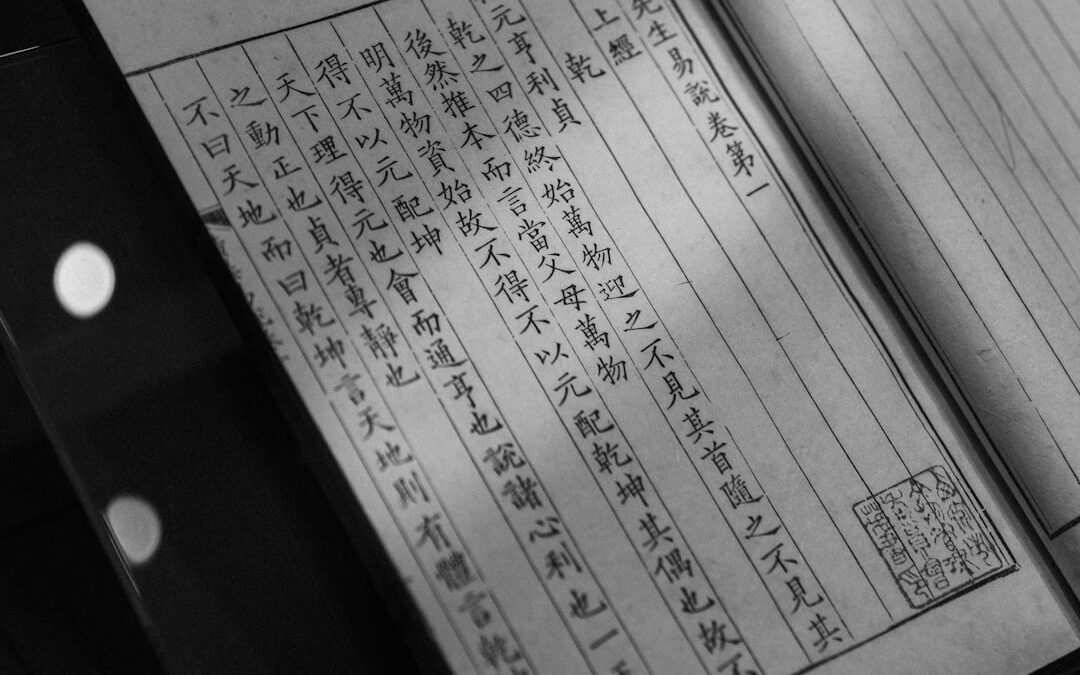 先生易說卷第一
上經
乾
元亨利貞
乾之四德終始萬物迎之不見其首隨之不見其
後然推本而言當父母萬物
明萬物資始故不得不以元配乾坤其偶也故不
得不以元配坤
天下理得元也會而通亨也說諸心利也一
之動正也貞者專靜也
不曰天地而曰乾坤言天地則有體言乾